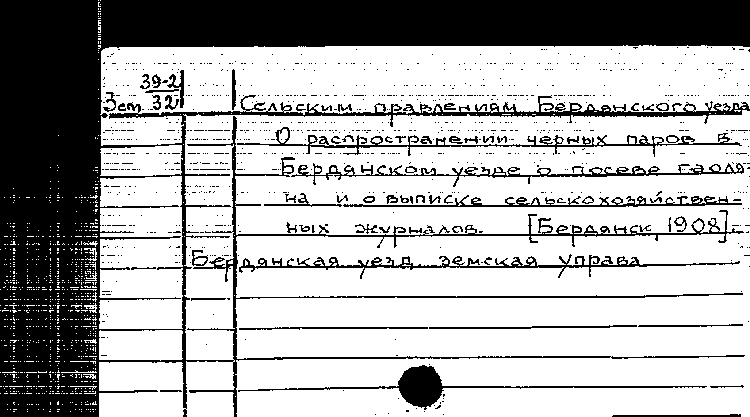 39-2
Зем. 32
Сельским правлениям Бердянского уезда
О распространении черных паров в
Бердянском уезде, о посеве гаоля-
на и о выписке сельскохозяйствен-
ных журналов. [Бердянск, 1908].
Бердянская уезд. земская управа